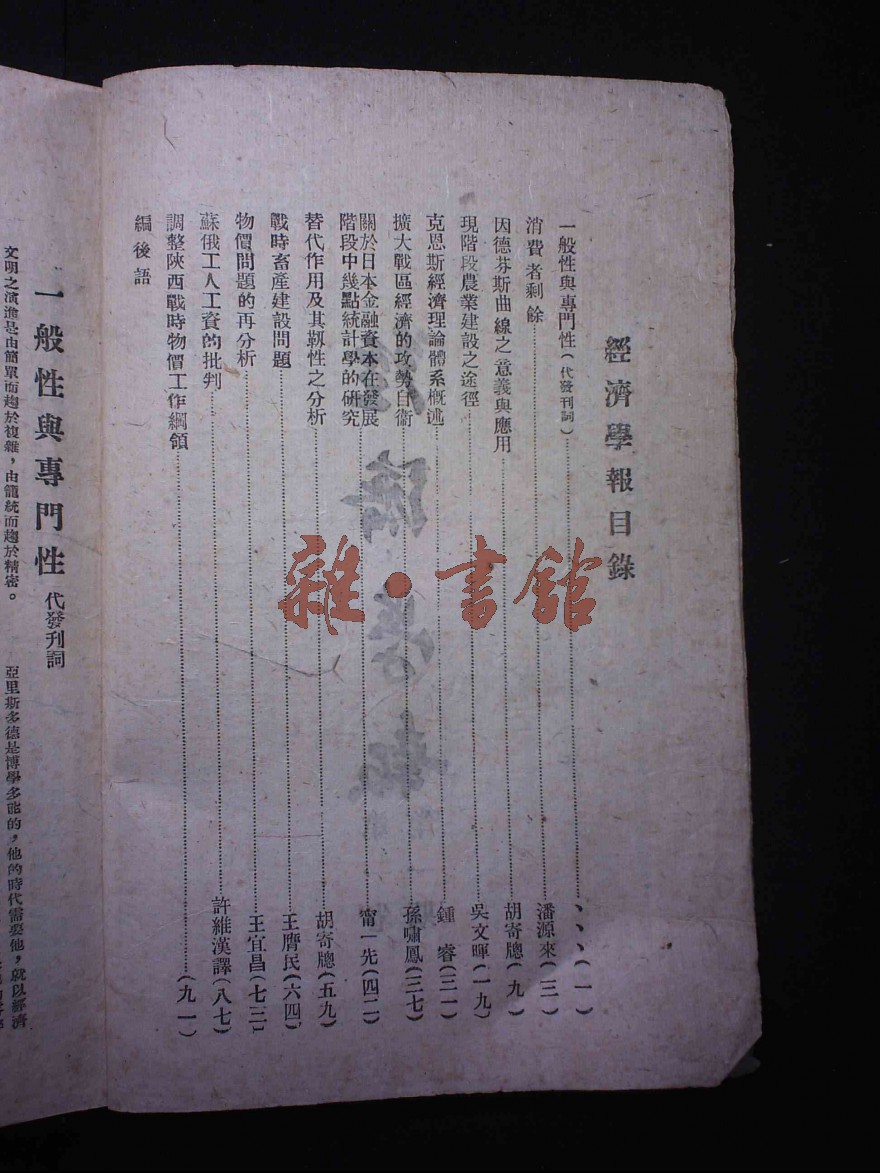 經濟學報目錄
一般性與專門性(代發刊詞)……、、、(一)
消費者剩餘……潘源來(三)
因德芬斯曲線之意義與應用……胡寄牕(九)
現階段農業建設之途徑……吳文暉(一九)
克恩斯經濟理論體系概述……鍾睿(三一)
擴大戰區經濟的攻勢自衞……孫嘯鳳(三七)
關於日本金融資本在發展
階段中幾點統計學的研究……甯一先(四二)
替代作用及其靱性之分析……胡寄牕(五九)
戰時畜產建設問題……王膺民(六四)
物價問題的再分析……王宜昌(七三)
蘇俄工人工資的批判……許維漢譯(八七)
調整陝西戰時物價工作綱領……(九一)
編後語
雜·書館
一般性與專門性 代發刊詞
文明之演進是由簡單而趨於複雜,由籠統而趨於精密。
亞里斯多德是博學多能的,他的時代需要他,就以經濟